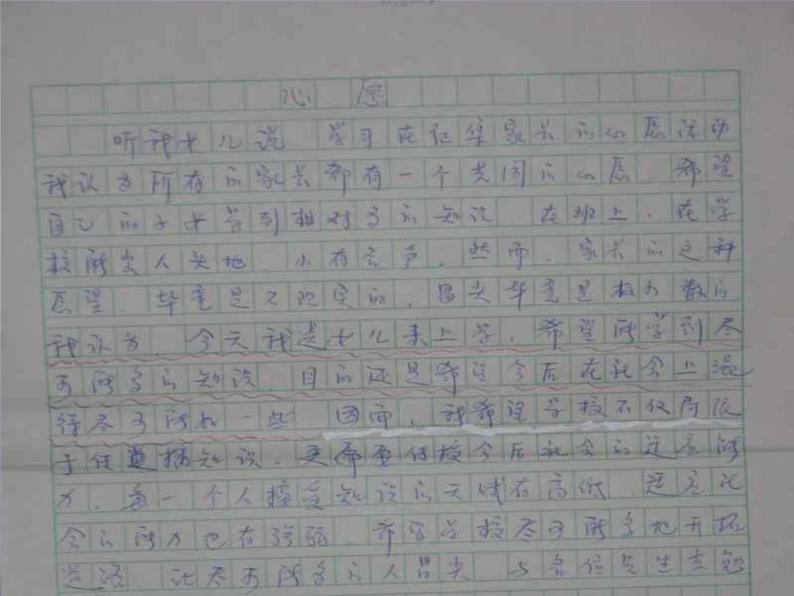 心愿
听我女儿说 学习在征集家长的心愿活动
我认为所有的家长都有一个共同的心愿．希望
自己的子女学到相对多的知识．在班上．在学
校能出人头地．小有名声．然而．家长的这种
愿望．毕竟是不现实的．冒尖毕竟是极少数的
我认为．今天我送女儿来上学．希望能学到尽
可能多的知识．目的还是希望今后在社会上混
得尽可能好一些．因而．我希望学校不仅局限
于传播知识．更需要传授今后社会的适应能
力．每一个人接受知识的天赋有高低．适应社
会的能力也有强弱．希望学校尽可能多地开拓
道路．让尽可能多的人冒尖．与各位先生共勉